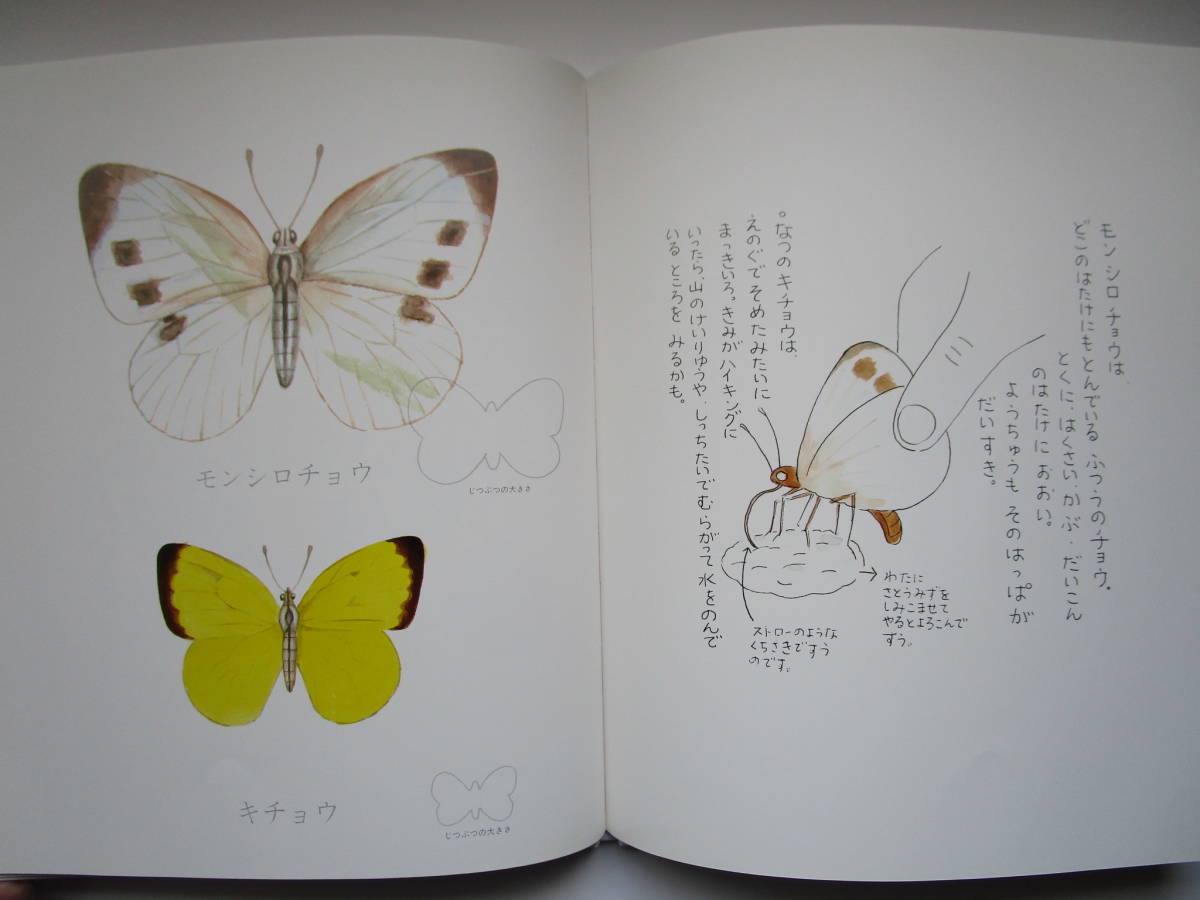 モンシロチョウ
じつぶつの大きさ
キチョウ
じつぶつの大きさ
モンシロチョウは、
どこのはたけにもとんでいる ふつうのチョウ。
とくに、はくさい・かぶ・だいこん
のはたけに おおい。
ようちゅうも そのはっぱが
だいすき。
。なつのキチョウは、
えのぐでそめたみたいに
まっきいろ。きみがハイキングに
いったら、山のけいりゅうや、しっちたいでむらがって 水をのんで
いるところを みるかも。
わたに
さとうみずを
しみこませて
やるとよろこんで
すう。
ストローのような
くちさきですう
のです。